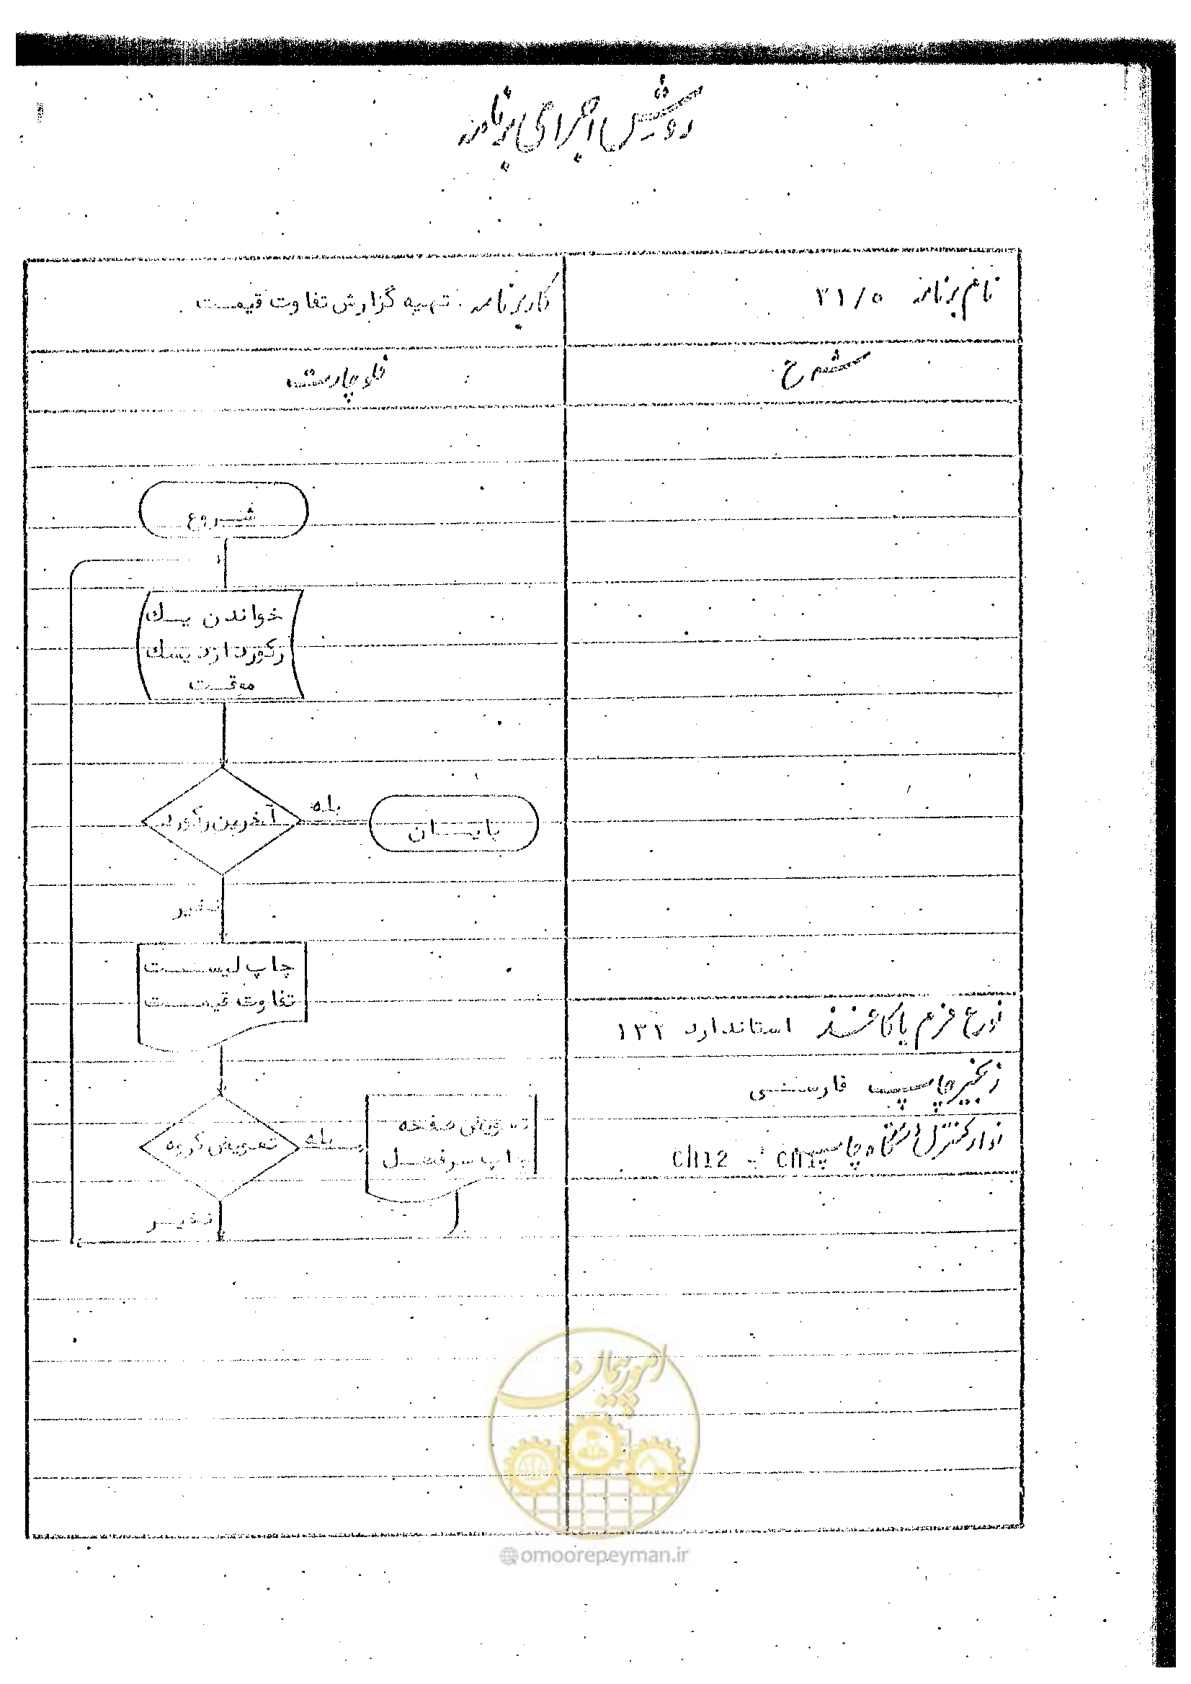 روش اجرای برنامه
نام برنامه ۳۱/۵
کاربرنامه : تهیه گزارش تفاوت قیمت .
شرح
فلوچارت
شروع
خواندن یک
رکورد از دیسک
موقت
آخرین رکورد
بله
پایان
نخیر
چاپ لیست
تفاوت قیمت
تعویض گروه
بله
تعویض صفحه
چاپ سرفصل
نخیر
نوع فرم یا کاغذ استاندارد ۱۳۲
زنجیر چاپ فارسی
نوار کنترل دستگاه چاپ Ch1 - Ch12
امور پیمان
@omoorepeyman.ir